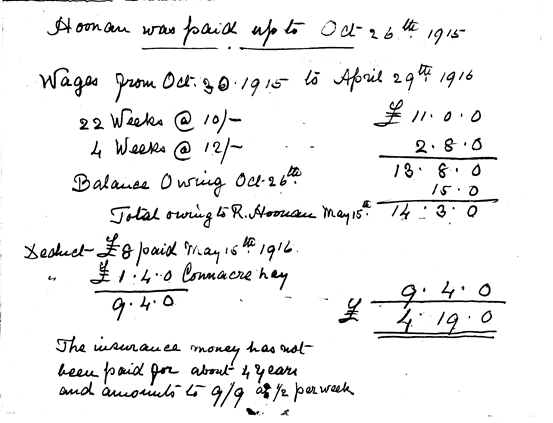 Hoonan was paid up to Oct 26th 1915
Wages from Oct. 30. 1915 to April 29th 1916
22 Weeks @ 10/- £ 11. 0. 0
4 Weeks @ 12/- 2. 8. 0
13. 8. 0
Balance Owing Oct-26th 15. 0
Total owing to R. Hoonan May 15th 14. 3. 0
Deduct £8 paid May 15th 1916.
" £1. 4. 0 Connacre hay
9. 4. 0 9. 4. 0
£ 4. 19. 0
The insurance money has not
been paid for about 4 years
and amounts to 9/9 at ½ per week